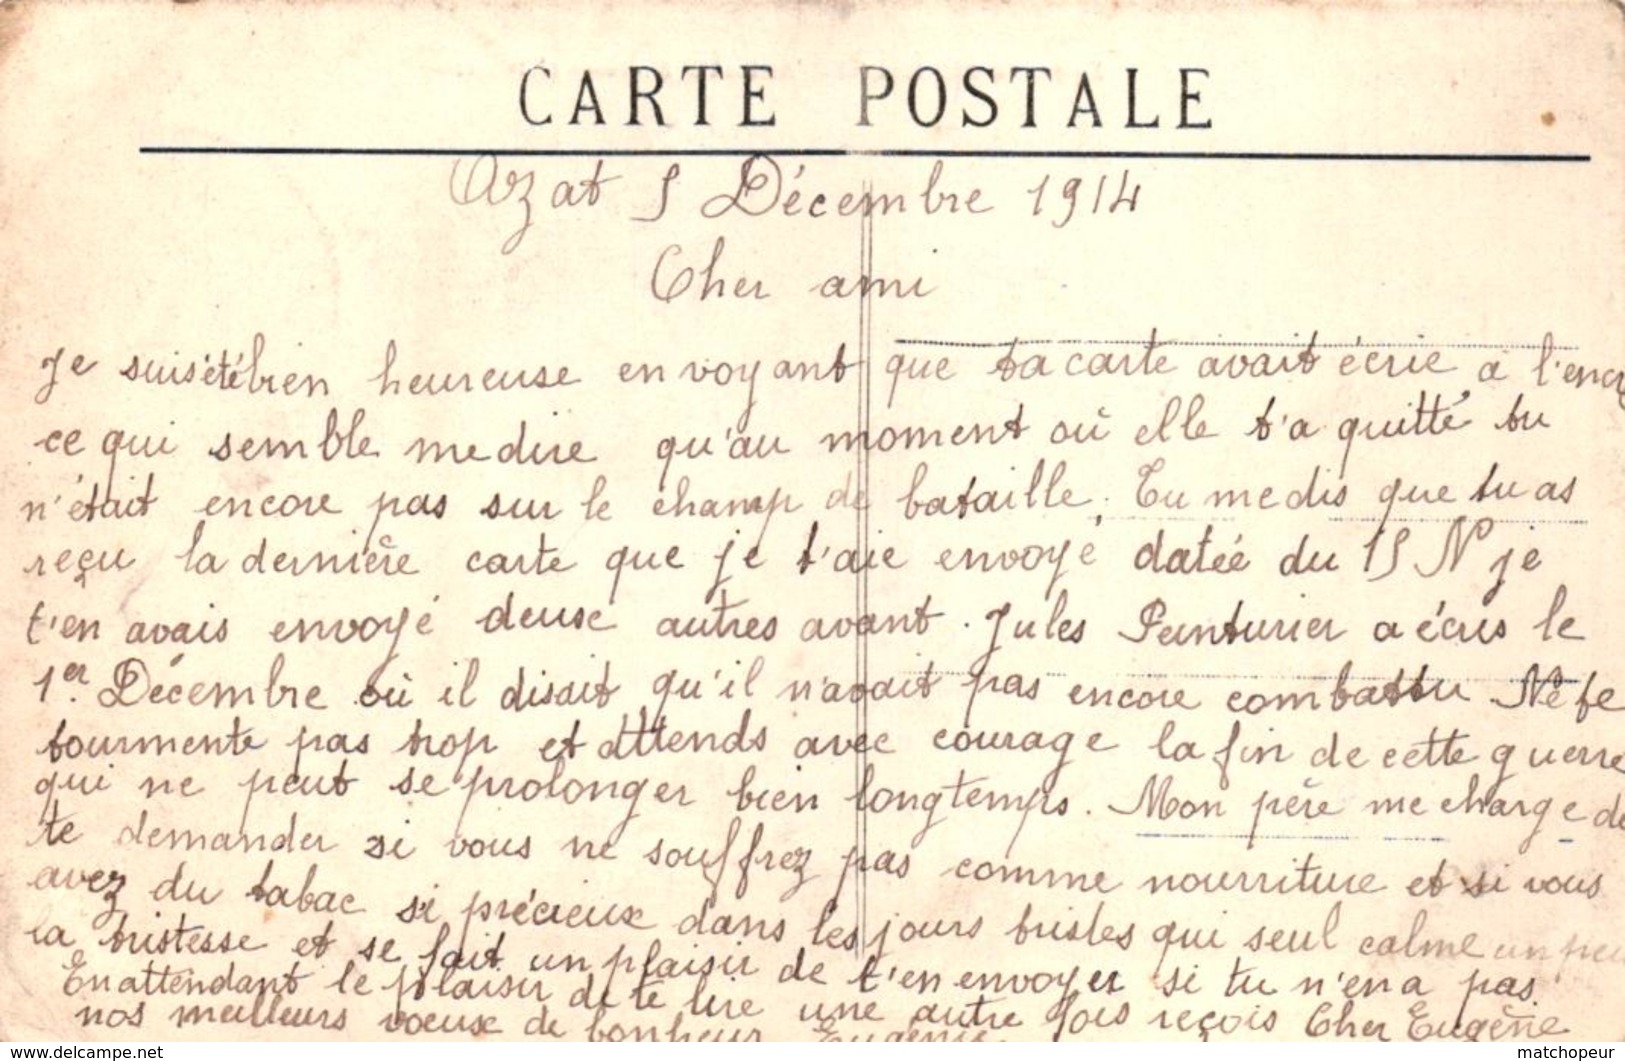 CARTE POSTALE
Azat 5 Décembre 1914
Cher ami
Je suis été bien heureuse en voyant que ta carte avait écrie à l'encre
ce qui semble me dire qu'au moment où elle t'a quitté tu
n'était encore pas sur le champ de bataille. Tu me dis que tu as
reçu la dernière carte que je t'aie envoyé datée du 15 N je
t'en avais envoyé deuse autres avant. Jules Peinturier a écris le
1er. Décembre où il disait qu'il n'avait pas encore combattu. Ne te
tourmente pas trop et attends avec courage la fin de cette guerre
qui ne peut se prolonger bien longtemps. Mon père me charge de
te demander si vous ne souffrez pas comme nourriture et si vous
avez du tabac si précieux dans les jours tristes qui seul calme un peu
la tristesse et se fait un plaisir de t'en envoyer si tu n'en a pas
En attendant le plaisir de te lire une autre fois reçois Cher Eugène
nos meilleurs voeux de bonheur Eugénie
matchopeur
© delcampe.net